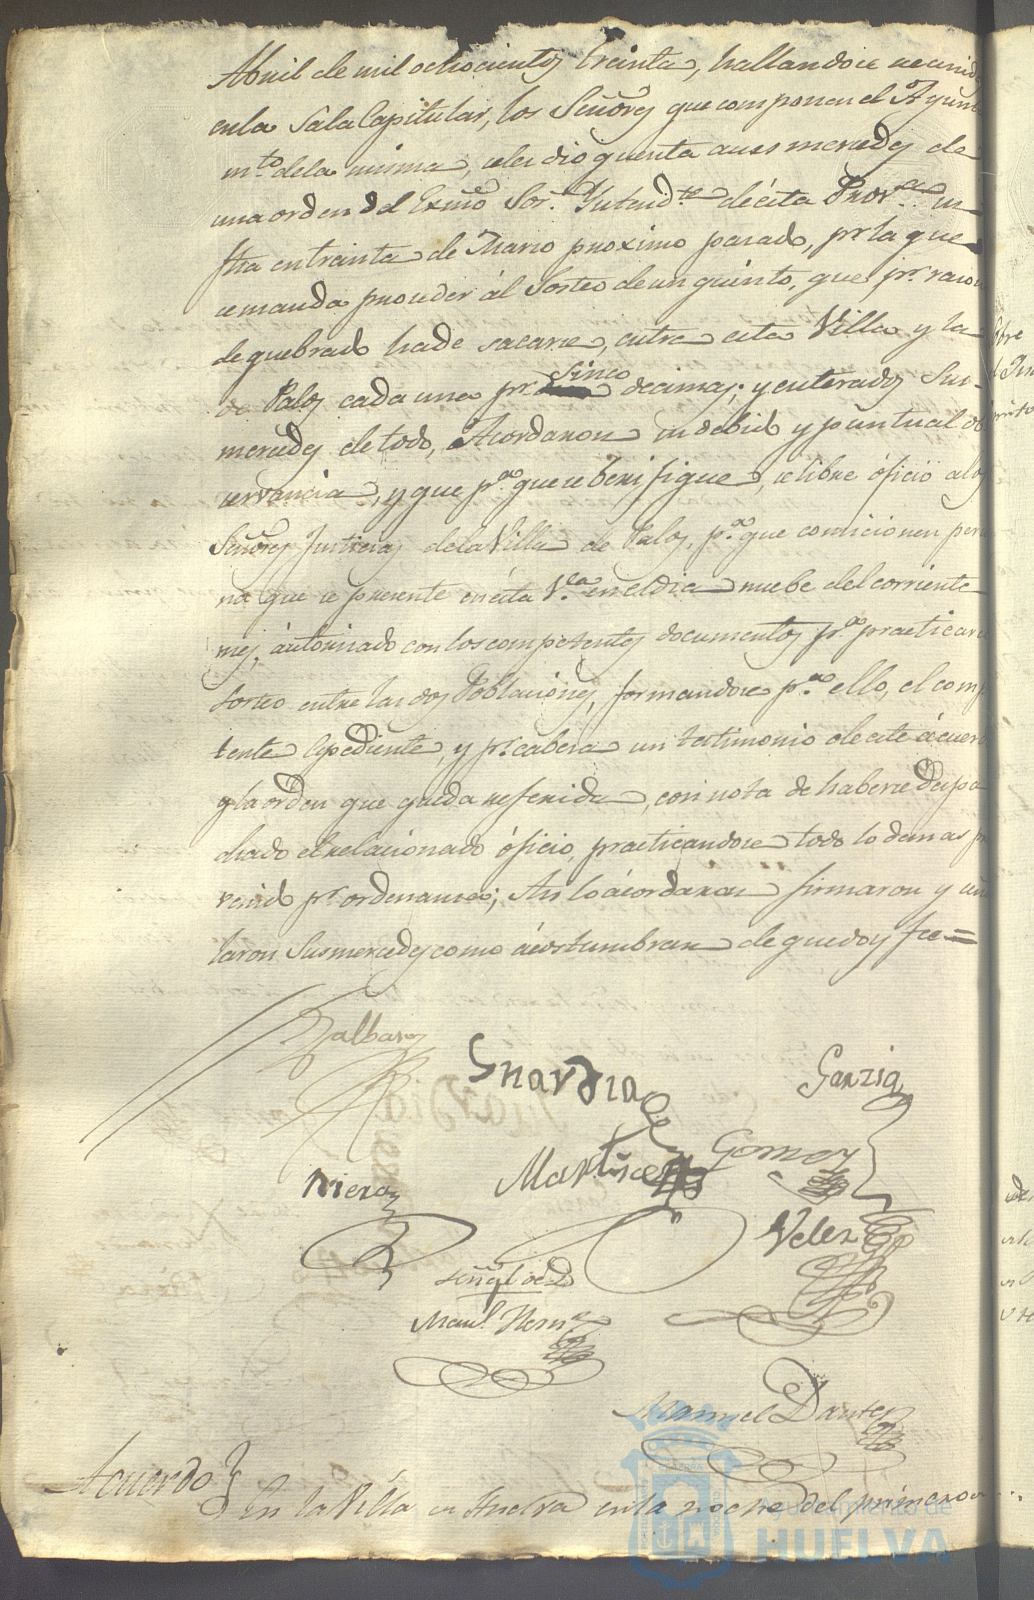 Abril de mil ochocientos treinta, hallandose reunid
en la Sala Capitular, los Señores que componen el Ayunt
mto. de la misma, se les dio quenta a sus mercedes de
una orden del Exmo Sor. Yntendte de esta Prova. su
fha en treinta de Marzo proximo pasado, pr la que
se manda proceder al Sorteo de un quinto, que pr. razon
de quebrado ha de sacarse, entre esta Villa y la
de Palos cada una pr. Sinco decimas; y enterados Sus
mercedes de todo, Acordaron su debido y puntual ob
servancia, y que pa. que se berifique, se libre óficio a los
Señores Justicias de la Villa de Palos, pa. que comicionen perso
na que se presente en esta Va. en el dia nuebe del corriente
mes, áutorisado con los competentes documentos pa. practicar
sorteo entre las dos Poblaciones, formandose pa. ello, el comp
tente Espediente, y pr. cabeza un testimonio de este ácuer
y la orden que queda referida, con nota de haberse despa
chado el relacionado óficio, practicandose todo lo demas pre
venido pr. ordenanza; Asi lo ácordaron firmaron y señ
laron Sus mercedes como ácostumbran de que doy fee=
Galbarz
Guardia
Garzia
Martinez
Gomez
Riera
Velez
Señal de D
Manl. Hernz
Manuel Dantes
Acuerdo
En la Villa de Huelva en la noche del primero de
Ayuntamiento de
HUELVA